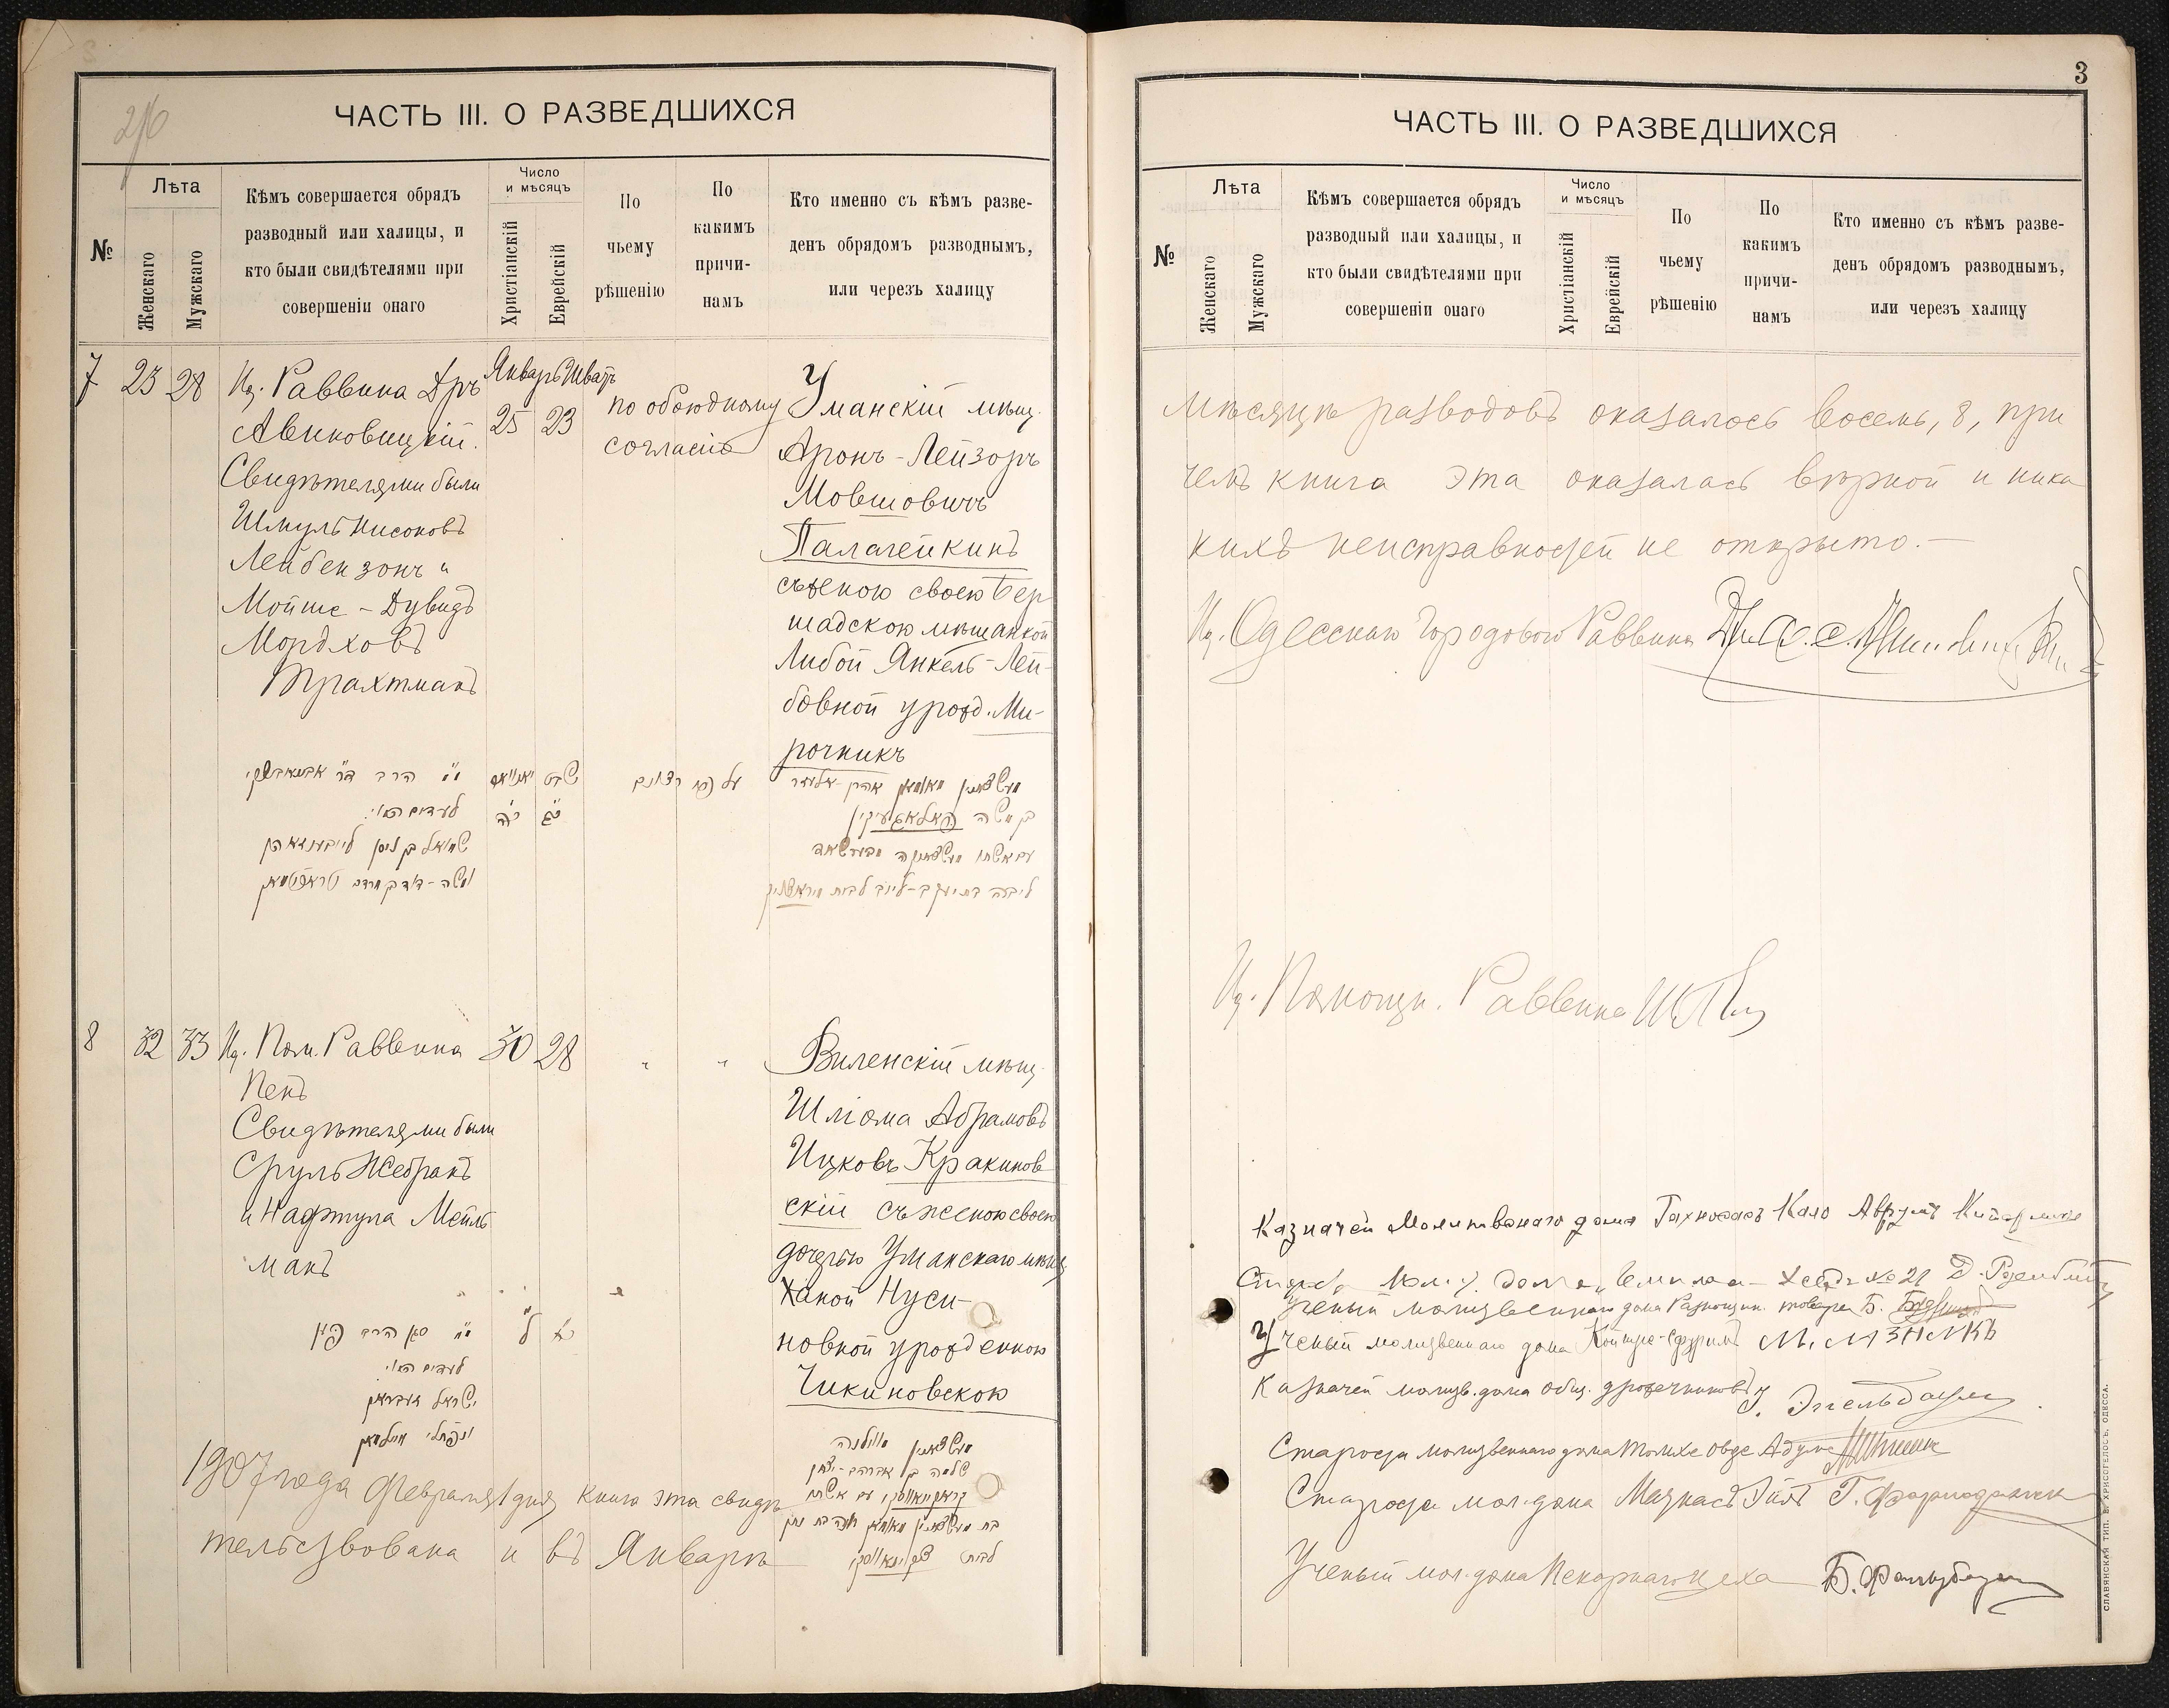 ЧАСТЬ III. О РАЗВЕДШИХСЯ
№
Лѣта
Женскаго
Мужскаго
Кѣмъ совершается обрядъ
разводный или халицы, и
кто были свидѣтелями при
совершеніи онаго
Число
и мѣсяцъ
Христіанскій
Еврейскій
По
чьему
рѣшенію
По
какимъ
причи-
намъ
Кто именно съ кѣмъ разве-
денъ обрядомъ разводнымъ,
или черезъ халицу
7 23 28
Ид. Раввина Дръ
Авиновицкій.
Свидѣтелями были
Шмуль Нисоновъ
Лейбензонъ и
Мойше-Дувидъ
Мордховъ
Трахтманъ
Январь Шватъ
25 23
по обоюдному
согласію
Уманскій мѣщ.
Аронъ-Лейзоръ
Мовшовичъ
Палагейкинъ
съ женою своею Бер
шадскою мѣщанкой
Либой Янкель-Лей-
бовной урожд. Ми-
рочникъ
הרב
לעדים היו:
שמואל בן ניסן
שבט
על פי רצונם
אהרן אליעזר
בן משה
עם אשתו
8 32 33
Ид. Пом. Раввина
Пенъ
Свидѣтелями были
Сруль Жебракъ
и Нафтула Мейль
манъ
30 28
" "
Виленскій мѣщ.
Шліома Абрамовъ
Ицковъ Кракинов
скій съ женою своею
дочерью Уманскаго мѣщ
Ханой Нуси-
новной урожденною
Чикиновскою
לעדים היו:
ישראל
נפתלי
1907 года Февраля 1 дня книга эта свидѣ
тельствована и въ Январѣ
3
ЧАСТЬ III. О РАЗВЕДШИХСЯ
№
Лѣта
Женскаго
Мужскаго
Кѣмъ совершается обрядъ
разводный или халицы, и
кто были свидѣтелями при
совершеніи онаго
Число
и мѣсяцъ
Христіанскій
Еврейскій
По
чьему
рѣшенію
По
какимъ
причи-
намъ
Кто именно съ кѣмъ разве-
денъ обрядомъ разводнымъ,
или черезъ халицу
мѣсяцѣ разводовъ оказалось восемь, 8, при
чемъ книга эта оказалась вѣрной и ника
кихъ неисправностей не открыто.—
Ид. Одесскаго Городового Раввина
Ид. Помощн. Раввина
Казначей Молитвеннаго дома Гахносасъ Кало Аврумъ
№ 21
Ученый молитвеннаго дома Разнощик. товара Б.
Ученый молитвеннаго дома М. МЗНИКЪ
Казначей молитв. дома общ.
Староста молитвеннаго дома
Староста мол. дома Г.
Ученый мол. дома Пекарнаго цеха Б.
СЛАВЯНСКАЯ ТИП. Е. ХРИСОГЕЛОСЪ, ОДЕССА.